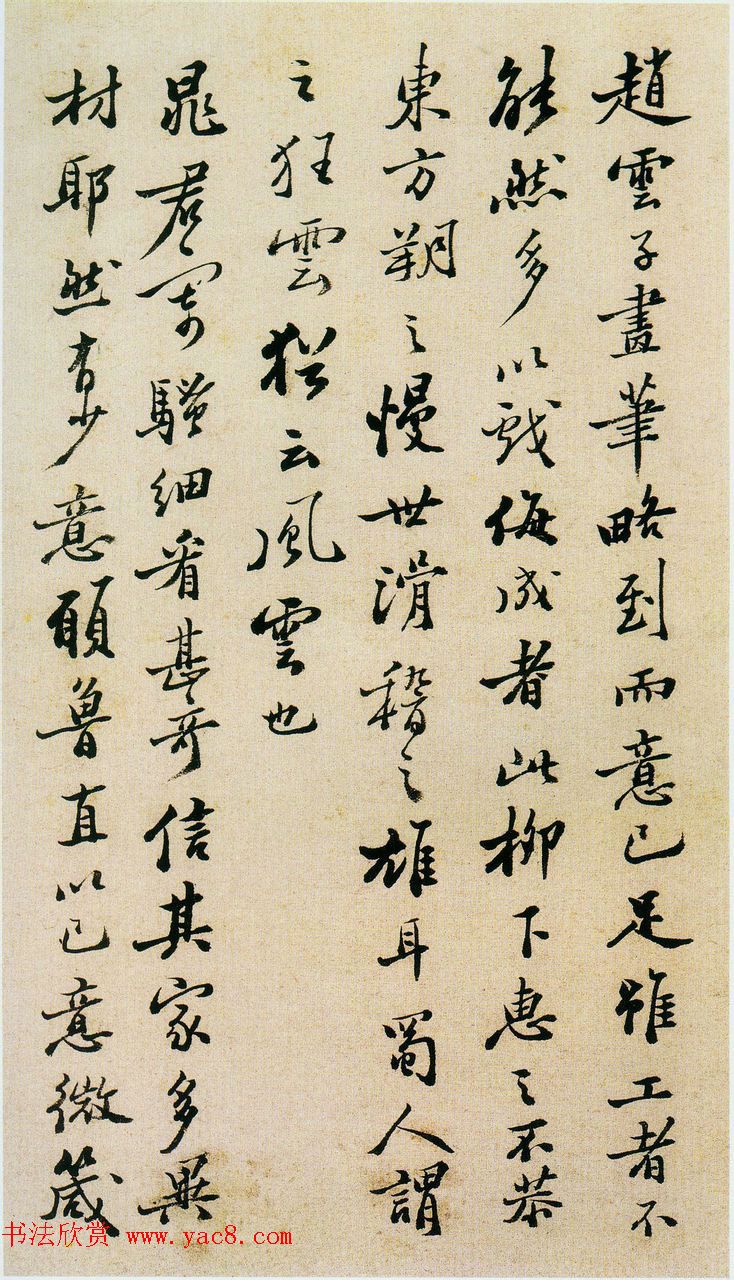 趙雲子畫筆略到而意已足雖工者不
能然多以戲侮成者此柳下惠之不恭
東方朔之慢世滑稽之雄耳蜀人謂
之狂雲猶云風雲也
晁君寄騷細看甚奇信其家多異
材耶然有少意願魯直以己意微箴
书法欣赏 www.yac8.com